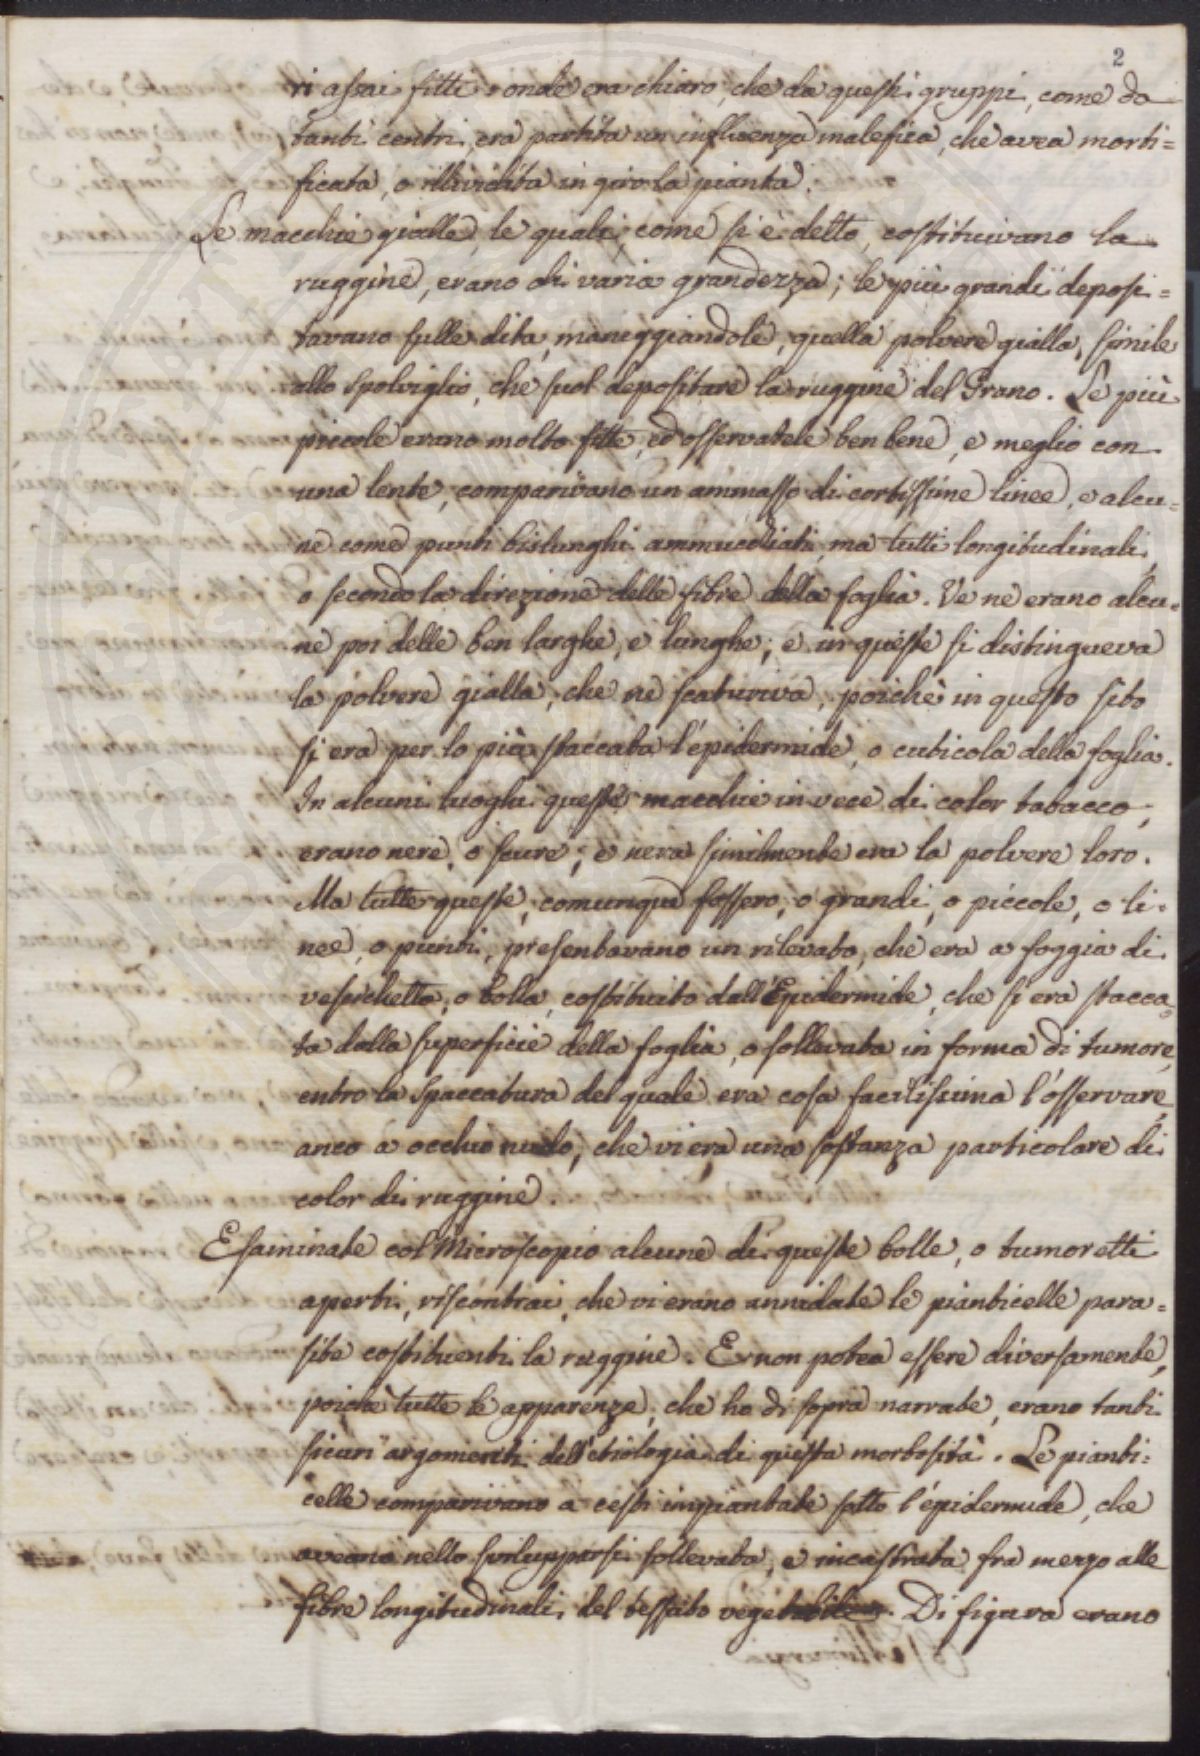 2
ri assai fitti: onde era chiaro, che da questi gruppi, come da
tanti centri, era partita un influenza malefica, che avea morti=
ficata, o illividita in giro la pianta.
Le macchie gialle, le quali, come si è detto, costituivano la
ruggine, erano di varia grandezza; le più grandi deposi=
tavano sulle dita, maneggiandole, quella polvere gialla, simile
allo spolviglio, che suol depositare la ruggine del Grano. Le più
piccole erano molto fitte, ed osservatele ben bene, e meglio con
una lente, comparivano un ammasso di cortissime linee, e alcu=
ne come punti bislunghi ammucchiati, ma tutti longitudinali,
o secondo la direzione delle fibre della foglia. Ve ne erano alcu=
ne poi delle ben larghe, e lunghe; e in queste si distingueva
la polvere gialla, che ne scaturiva, poichè in questo sito
si era per lo più staccata l'epidermide, o cuticola della foglia.
In alcuni luoghi queste macchie in vece di color tabacco,
erano nere, o scure; e nera similmente era la polvere loro.
Ma tutte queste, comunque fossero, o grandi, o piccole, o li=
nee, o punti, presentavano un rilevato, che era a foggia di
vescichetta, o bolla, costituito dall'Epidermide, che si era stacca=
ta dalla superficie della foglia, o sollevata in forma di tumore,
entro la spaccatura del quale era cosa facilissima l'osservare
anco a occhio nudo, che vi era una sostanza particolare di
color di ruggine.
Esaminate col Microscopio alcune di queste bolle, o tumoretti
aperti, riscontrai, che vi erano annidate le pianticelle para=
site costituenti la ruggine. E non potea essere diversamente,
poichè tutte le apparenze, che ho di sopra narrate, erano tanti
sicuri argomenti dell'etiologia di questa morbosità. Le pianti=
celle comparivano a cesti impiantate sotto l'epidermide, che
aveano nello svilupparsi sollevata, e incastrata fra mezzo alle
fibre longitudinali del tessuto vegetabile. Di figura erano